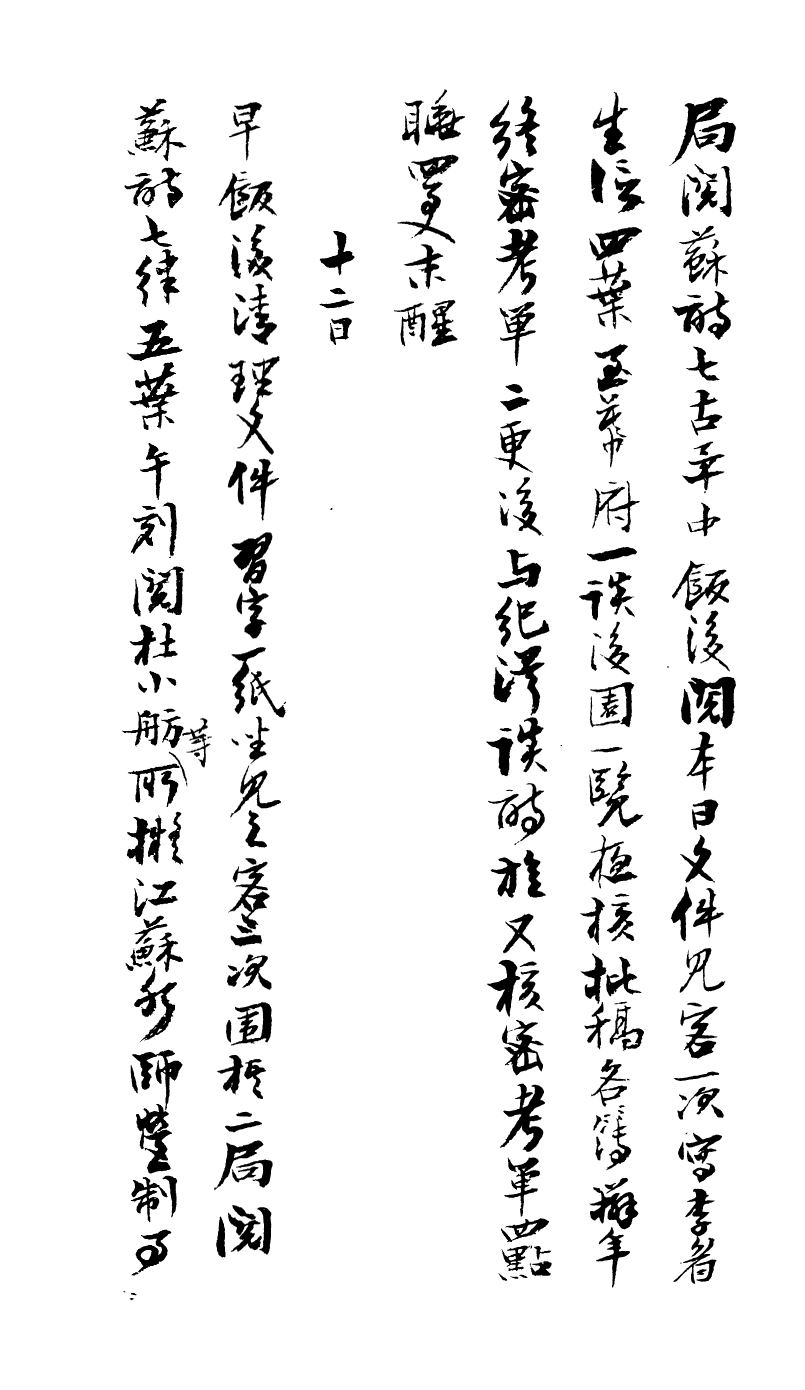 局閱蘇詩七古平中飯後閱本日文件見客一次寫李眉
生信四葉至幕府一談後園一覽極核批稿各簿粗年
終密考單二更後与紀澤談詩旋又核密考單四點
睡四更末醒
十二日
早飯後清理文件習字一紙坐見之客三次圍棋二局閱
蘇詩七律五葉午刻閱杜小舫等所擬江蘇水師營制事